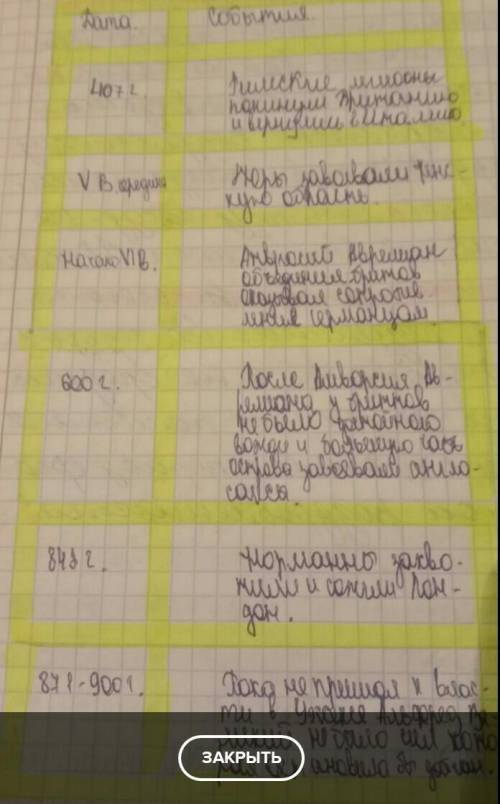 Дата.
События.
407 г.
Римские легионы
покинули Британию
и вернулись в Италию.
V в. середина
завоевали Кен-
скую область.
Начало VI в.
Амвросий Аврелиан
объединил бриттов
оказывал сопротив
ления германцам.
600 г.
После Амвросия Ав-
релиана у бриттов
не было
вождя и большую часть
острова завоевали англо-
саксы.
Норманны захва-
тили и сожгли Лон-
дон.
871-900 г.
Пока не пришёл к влас-
ти в Альфред Ве-
ликий не было сил
ЗАКРЫТЬ